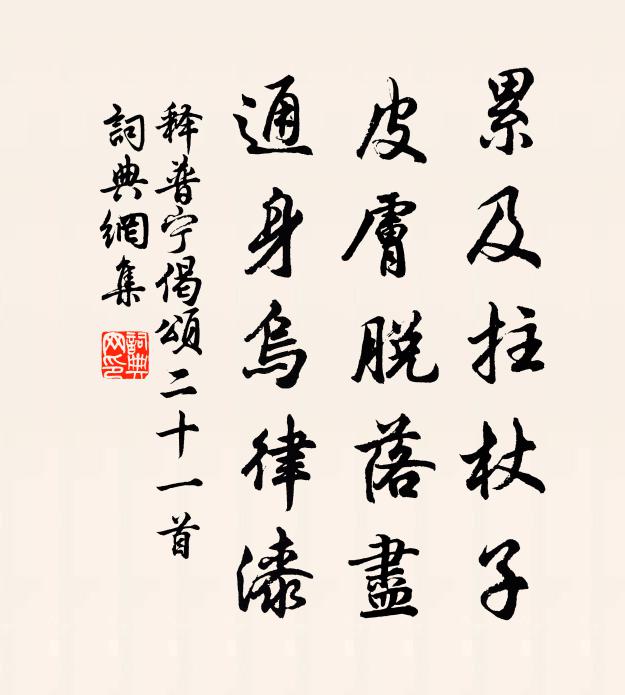 累及拄杖子
皮膚脱落盡
通身烏律漆
释普宁偈頌二十一首
詞典網集
詞典网印